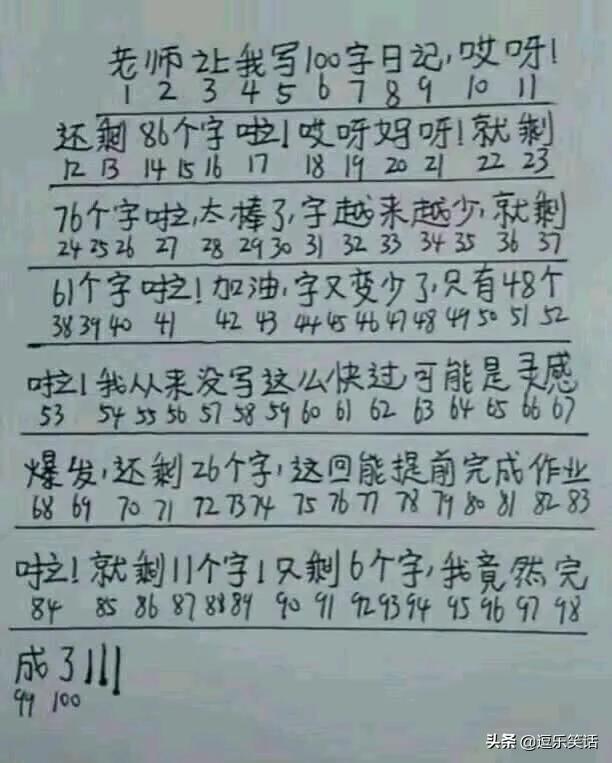 老师让我写100字日记,哎呀!
1 2 3 4 5 6 7 8 9 10 11
还剩86个字啦!哎呀妈呀!就剩
12 13 14 15 16 17 18 19 20 21 22 23
76个字啦,太棒了,字越来越少,就剩
24 25 26 27 28 29 30 31 32 33 34 35 36 37
61个字啦!加油,字又变少了,只有48个
38 39 40 41 42 43 44 45 46 47 48 49 50 51 52
啦!我从来没写这么快过,可能是灵感
53 54 55 56 57 58 59 60 61 62 63 64 65 66 67
爆发,还剩26个字,这回能提前完成作业
68 69 70 71 72 73 74 75 76 77 78 79 80 81 82 83
啦!就剩11个字!只剩6个字,我竟然完
84 85 86 87 88 89 90 91 92 93 94 95 96 97 98
成了!!!
99 100
头条 @逗乐笑话